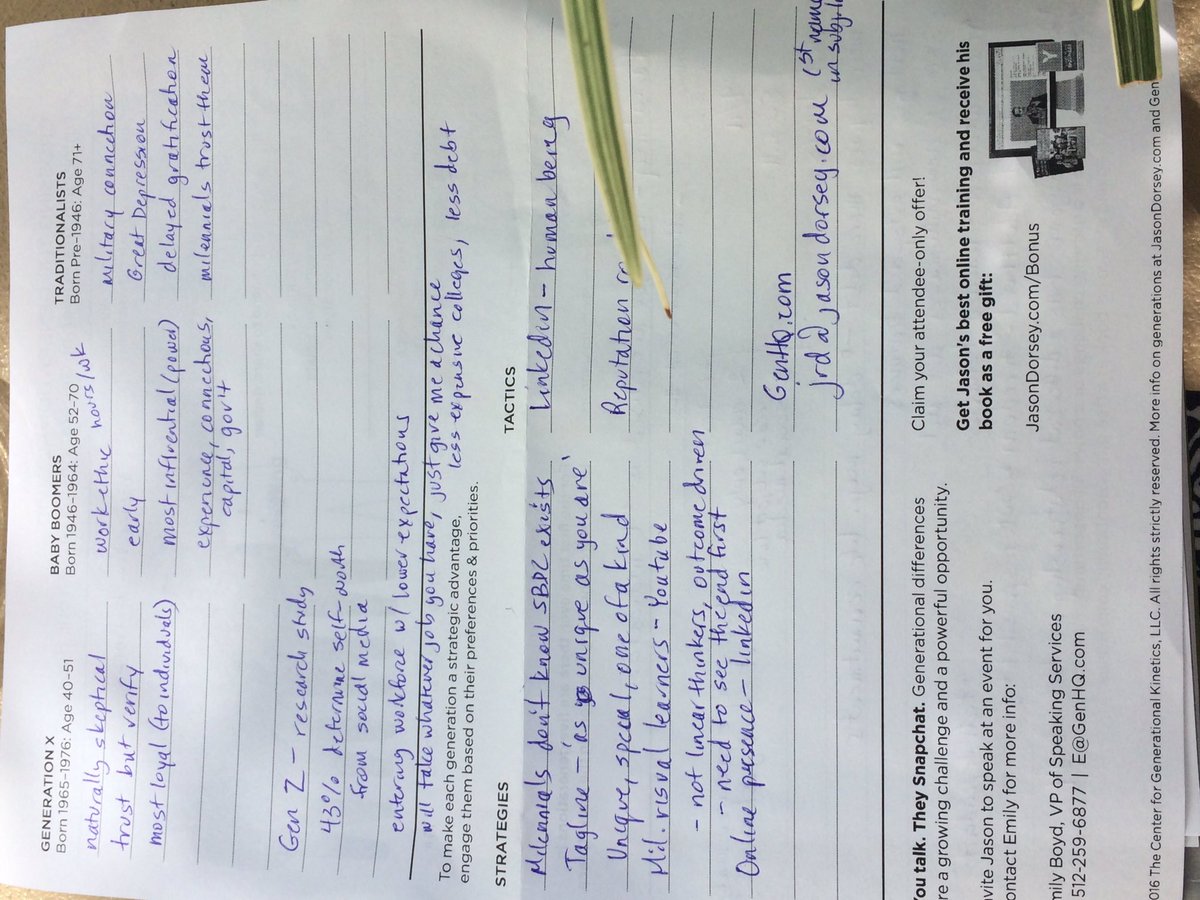 GENERATION X
Born 1965–1976: Age 40-51
naturally skeptical
trust but verify
most loyal (to individuals)
BABY BOOMERS
Born 1946–1964: Age 52-70
work ethic hours/wk
early
most influential (power)
experience, connections,
capital, gov't
TRADITIONALISTS
Born Pre-1946: Age 71+
military connection
Great Depression
delayed gratification
milennials trust them
Gen Z - research study
43% determine self-worth
from social media
entering workforce w/ lower expectations
will take whatever job you have, just give me a chance
less expensive colleges, less debt
To make each generation a strategic advantage,
engage them based on their preferences & priorities.
STRATEGIES
Milennials don't know SBDC exists
Tagline - 'as unique as you are'
Unique, special, one of a kind
Mil. visual learners - Youtube
- not linear thinkers, outcome driven
- need to see the end first
Online presence - linkedin
TACTICS
Linkedin - human being
Reputation
GenHQ.com
jrd@jasondorsey.com (1st name
in subj. l
You talk. They Snapchat. Generational differences
re a growing challenge and a powerful opportunity.
nvite Jason to speak at an event for you.
ontact Emily for more info:
mily Boyd, VP of Speaking Services
512-259-6877 | E@GenHQ.com
Claim your attendee-only offer!
Get Jason's best online training and receive his
book as a free gift:
JasonDorsey.com/Bonus
016 The Center for Generational Kinetics, LLC. All rights strictly reserved. More info on generations at JasonDorsey.com and Gen